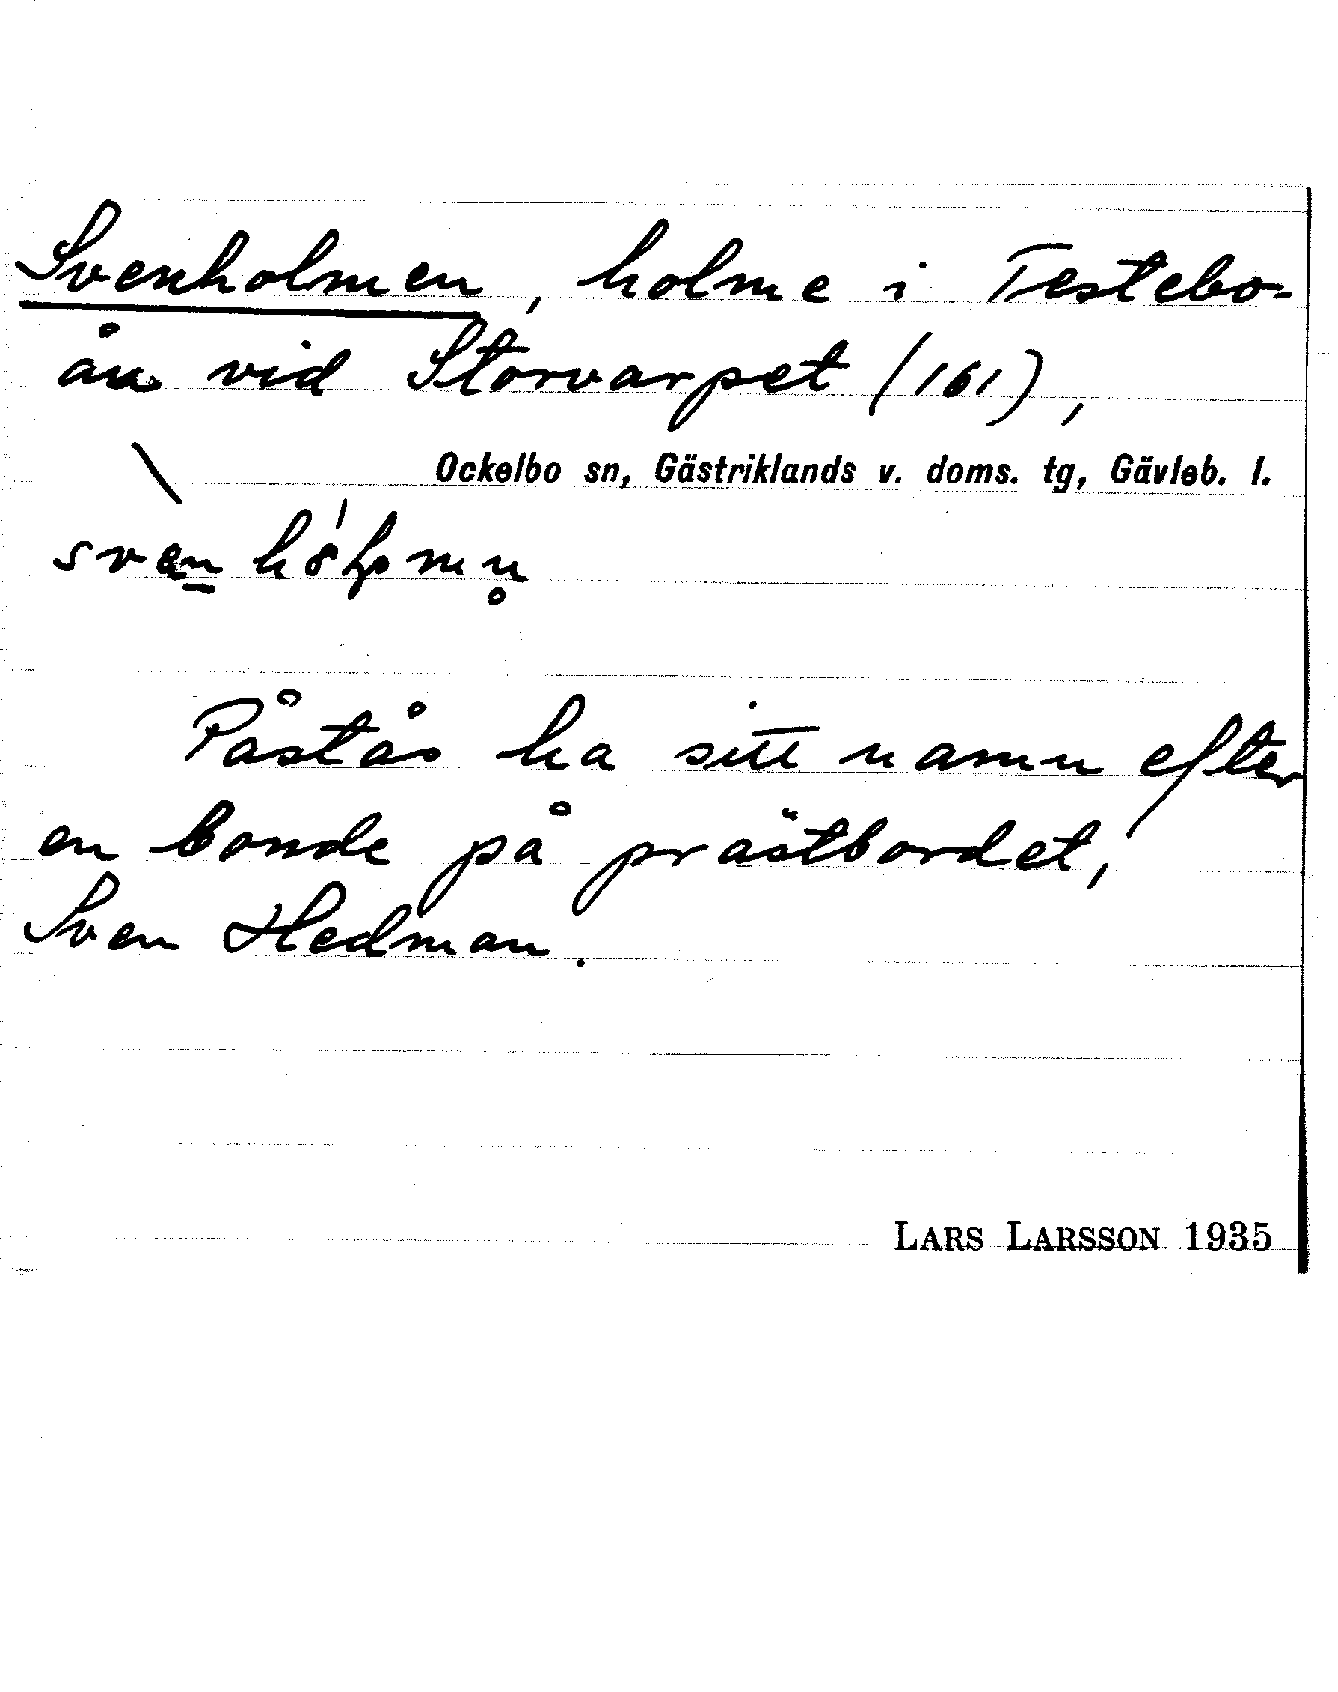 Svenholmen, holme i Testebo-
ån vid Storvarpet (161),
Ockelbo sn, Gästriklands v. doms. tg, Gävleb. l.
Påstås ha sitt namn efter
en bonde på prästbordet,
Sven Hedman.
LARS LARSSON 1935